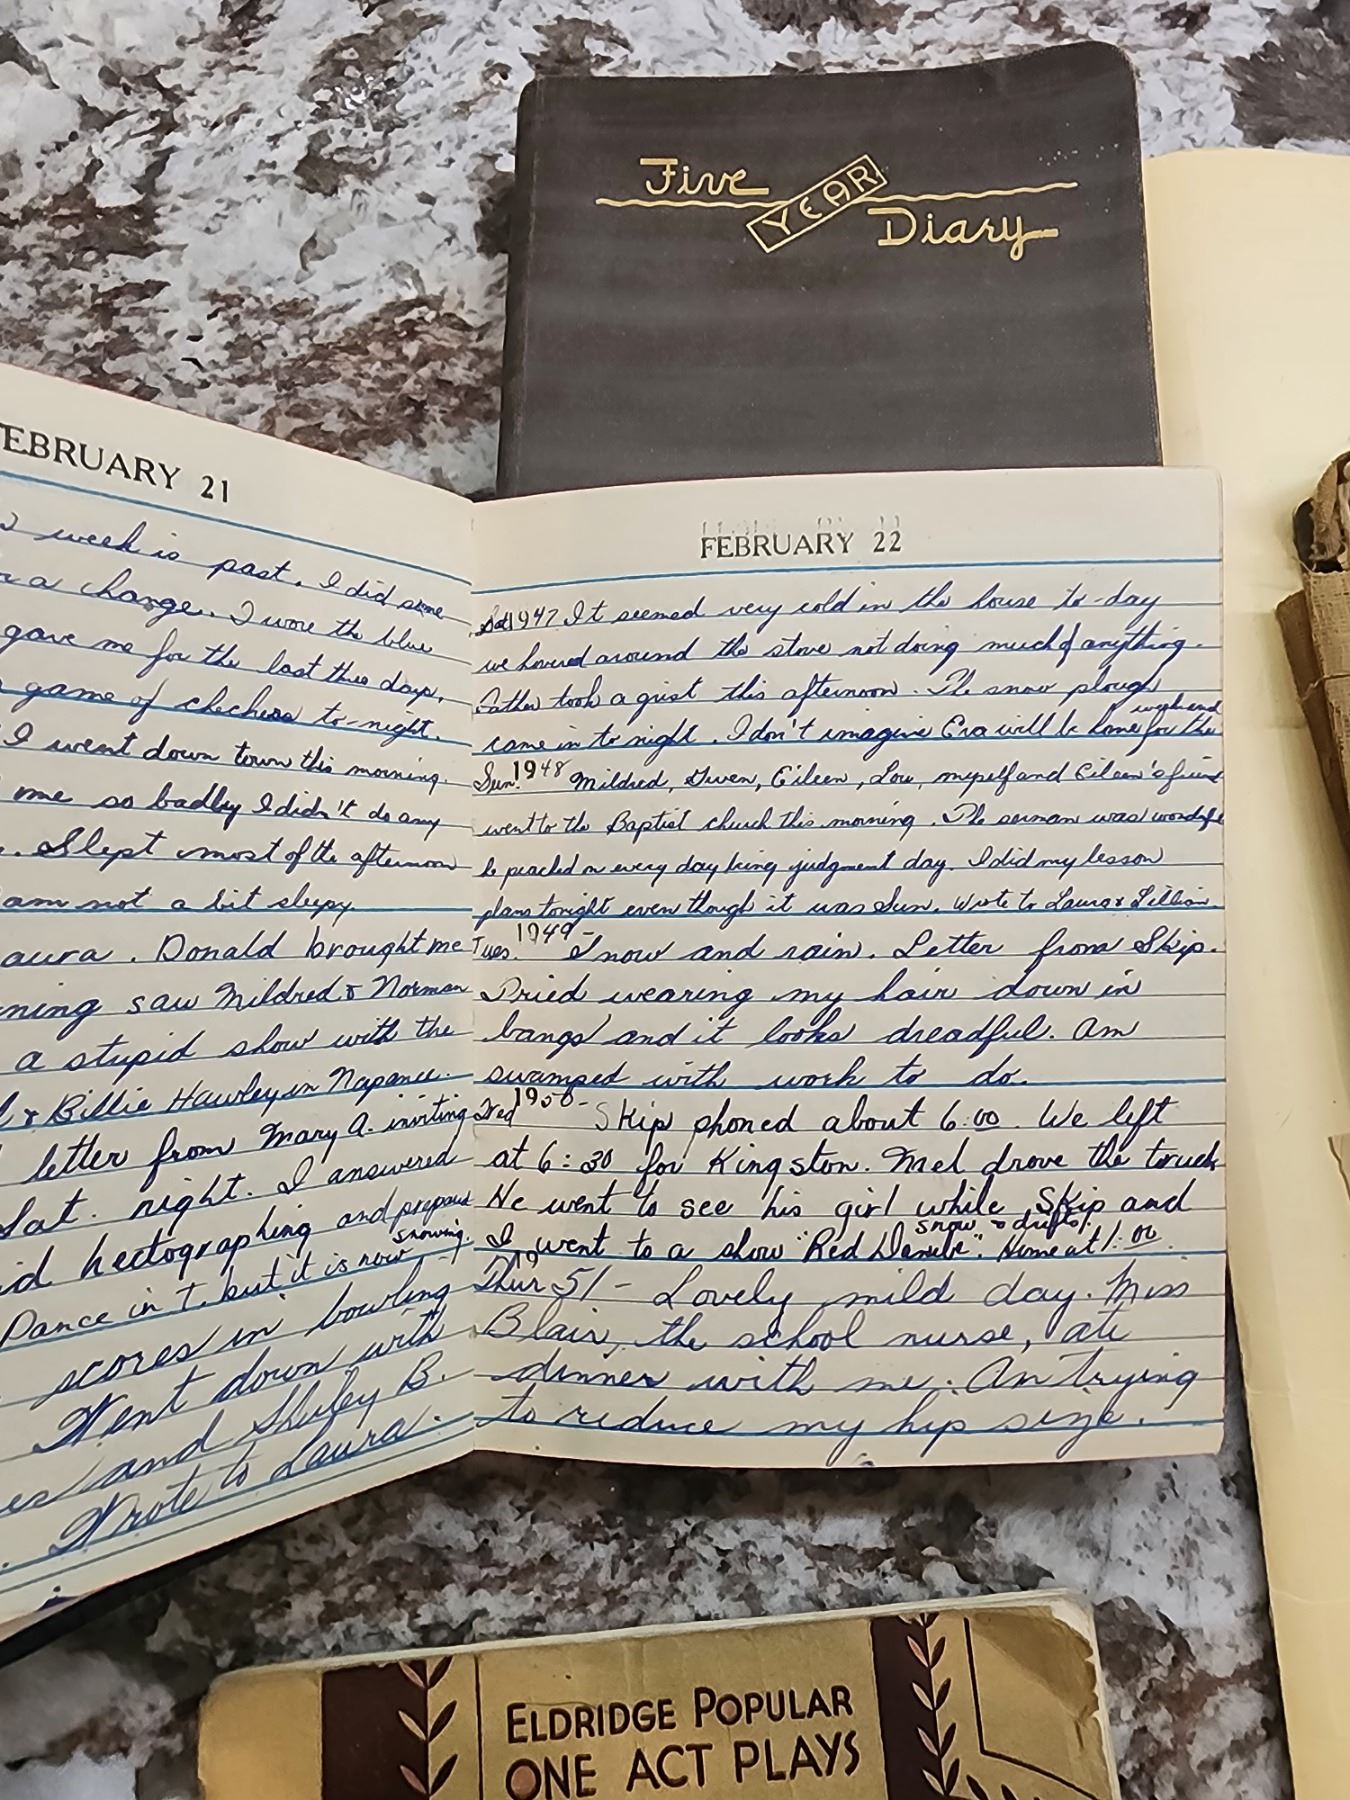 Five
YEAR
Diary
FEBRUARY 21
week is past. I did some
a change. I wore the blue
gave me for the last three days,
game of checkers to-night.
I went down town this morning.
me so badly I didn't do any
. Slept most of the afternoon
am not a bit sleepy.
aura. Donald brought me
ning saw Mildred & Norman
a stupid show with the
& Billie Hawley in Napanee.
letter from Mary A. inviting
Sat. night. I answered
id hectographing and prepared
snowing.
Dance in T. but it is now
scores in bowling
Went down with
es and Shirley B.
. Wrote to Laura.
FEBRUARY 22
Sat 1947 It seemed very cold in the house to-day
we hovered around the stove not doing much of anything.
Father took a grist this afternoon. The snow plough
week end
came in to night. I don't imagine Eva will be home for the
Sun. 1948 Mildred, Gwen, Eileen, Lou, myself and Eileen's friend
went to the Baptist church this morning. The serman was wonderful
he preached on every day being judgment day. I did my lesson
plans tonight even though it was Sun. Wrote to Laura & Lillian.
Tues. 1949- Snow and rain. Letter from Skip.
Tried wearing my hair down in
bangs and it looks dreadful. Am
swamped with work to do.
Wed 1950- Skip phoned about 6:00. We left
at 6:30 for Kingston. Mel drove the truck
He went to see his girl while Skip and
snow & drifts.
I went to a show "Red Danube". Home at 1:00.
Thur 1951- Lovely mild day. Miss
Blair, the school nurse, ate
dinner with me. Am trying
to reduce my hip size.
ELDRIDGE POPULAR
ONE ACT PLAYS